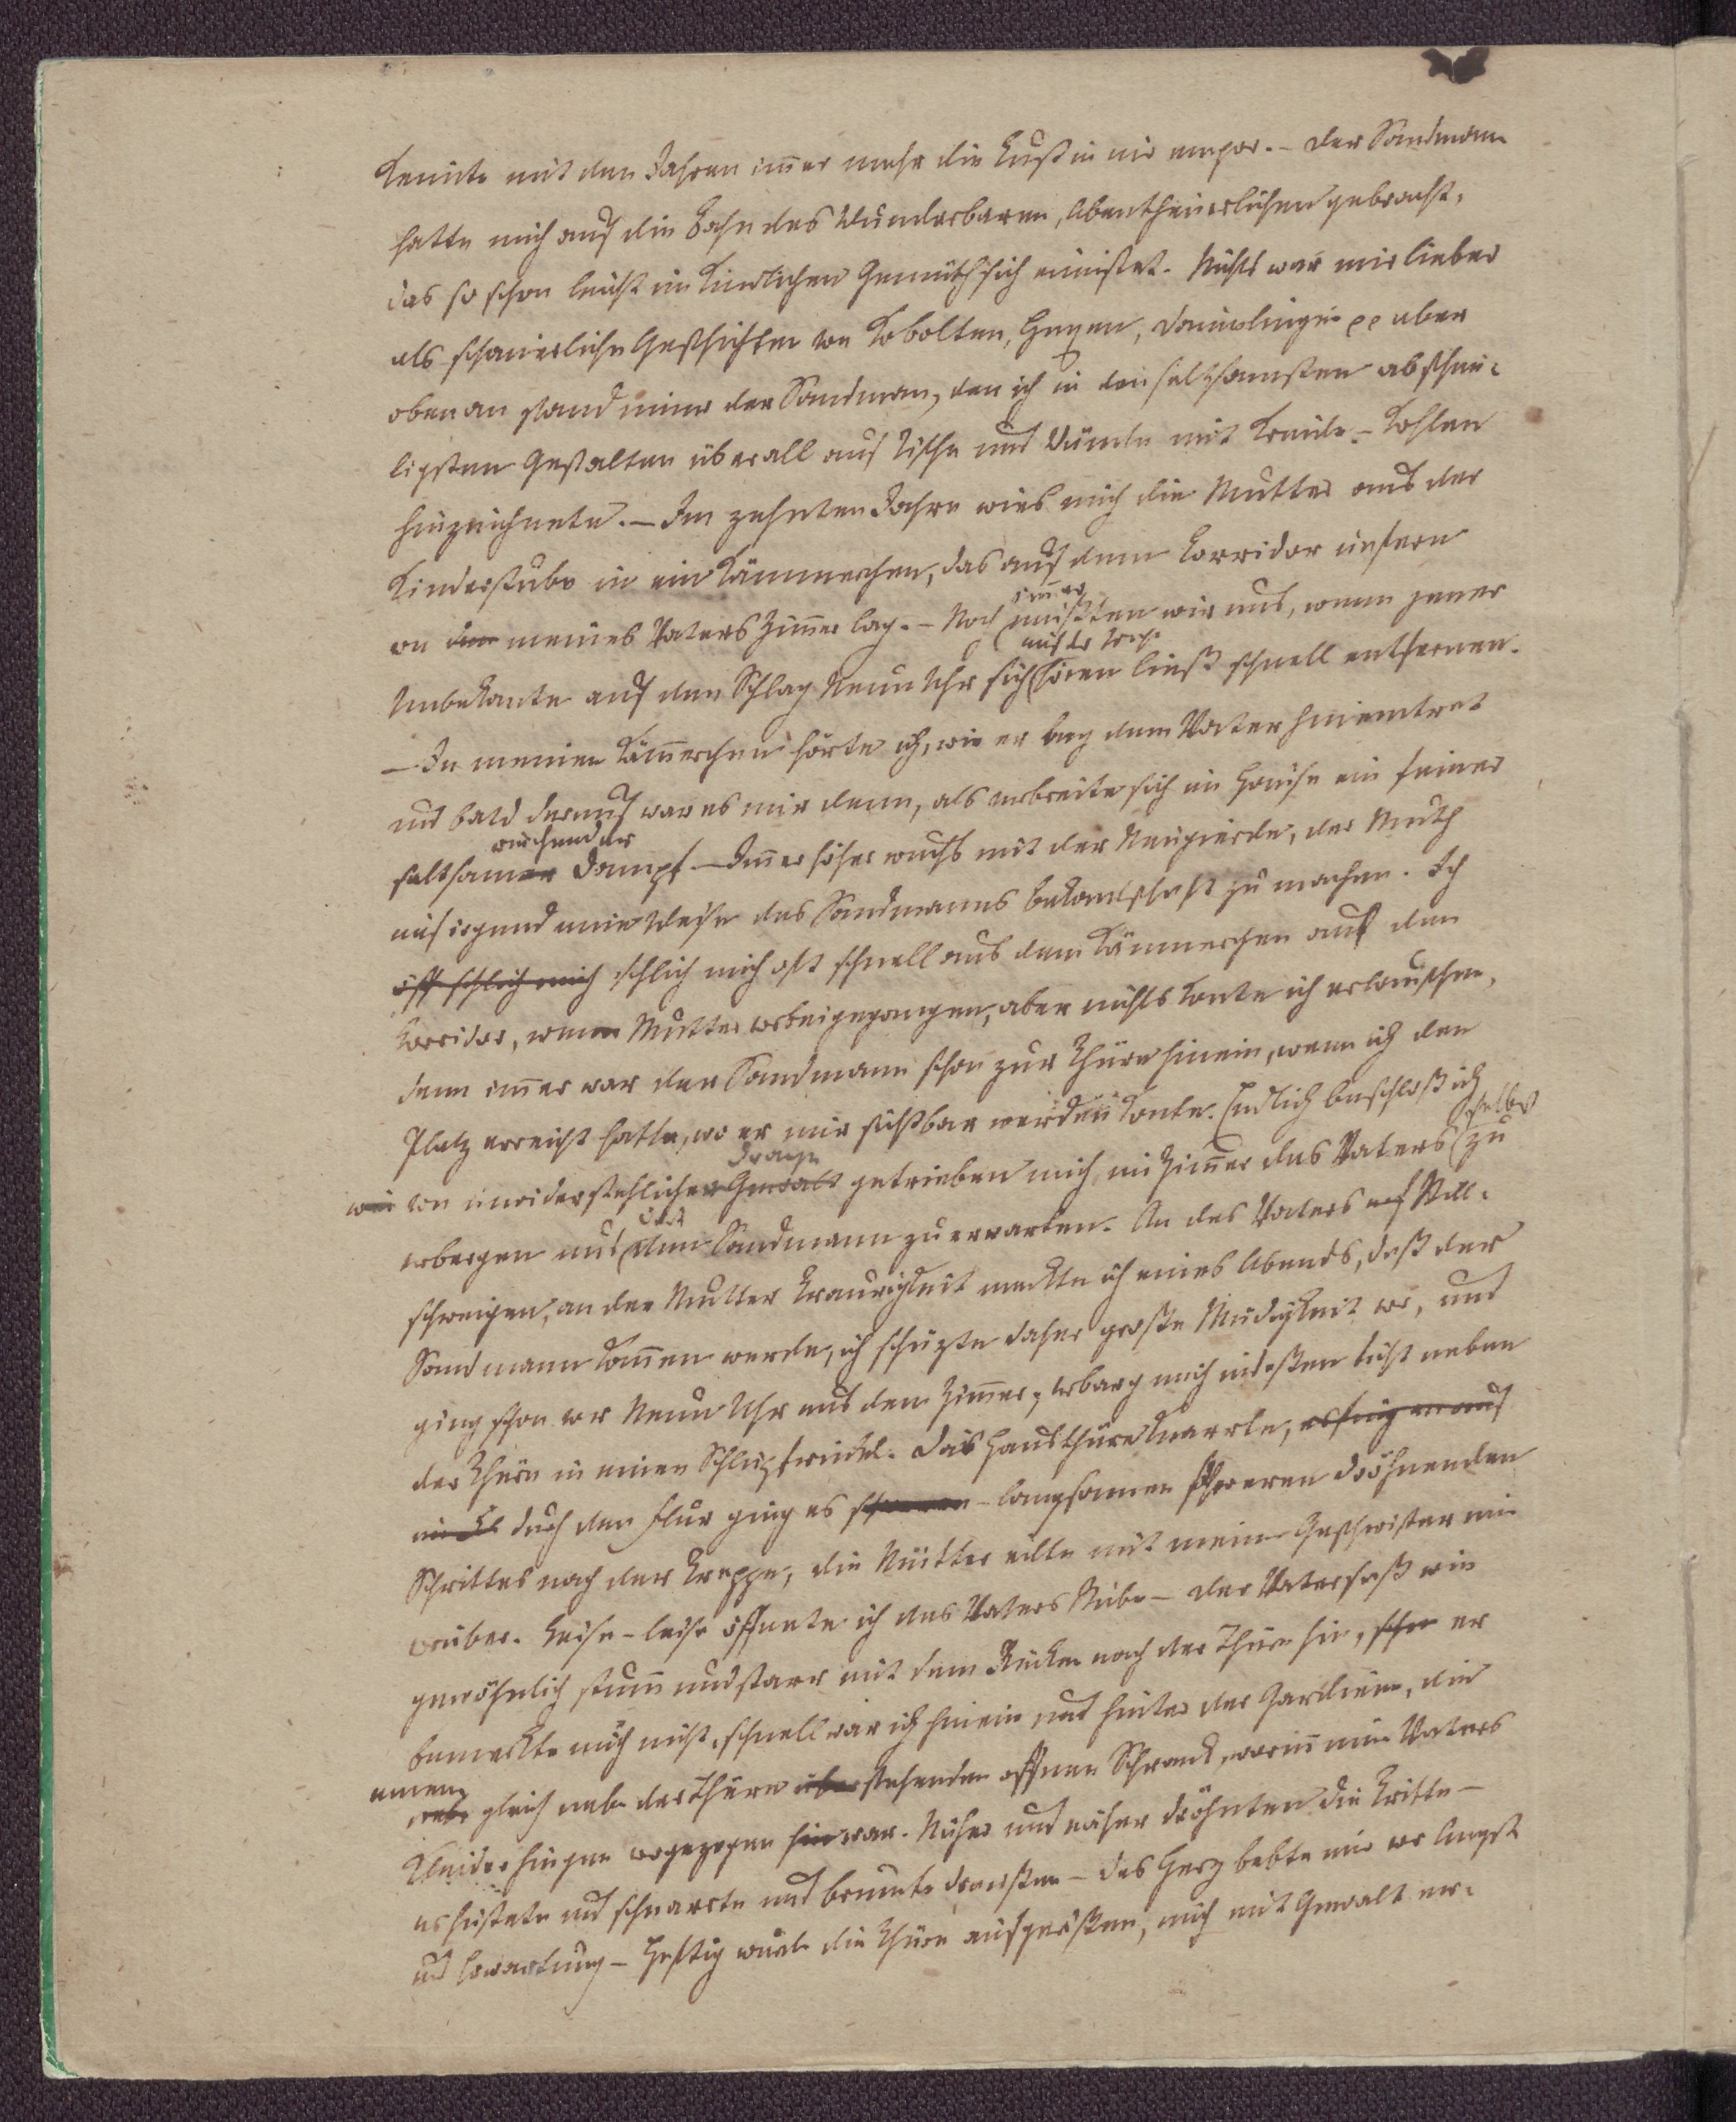 keimte mit den Jahren im̄er mehr die Lust in mir empor. – Der Sandmann
hatte mich auf die Bahn des Wunderbaren, Abentheuerlichen gebracht,
das so schon leicht im kindlichen Gemüth sich einnistet. Nichts war mir lieber
als schauerliche Geschichten von Kobolten, Hexen, Däumlingen pp aber
obenan stand immer der Sandman, den ich in den seltsamsten abscheu-
ligsten Gestalten überall auf Tische und Wände mit Kreide – Kohlen
hinzeichnete. – Im zehnten Jahre wies mich die Mutter aus der
Kinderstube in ein Kämmerchen, das auf dem Corridor unfern
von meines Vaters Zim̄er lag. – Noch mußten wir uns, wenn jener
im̄er
auf der Treppe
Unbekante auf den Schlag Neun Uhr sich hören ließ schnell entfernen.
– In meinem Käm̄erchen hörte ich, wie er bey dem Vater hineintrat
und bald darauf war es mir dann, als verbreite sich im Hause ein feiner
riechender
seltsamer Dampf – Im̄er höher wuchs mit der Neugierde, der Muth
auf irgend eine Weise des Sandmanns bekantschaft zu machen. Ich
öff schlich mich schlich mich oft schnell aus dem Kämmerchen auf den
Corridor, wenn Mutter vorbeigegangen, aber nichts konte ich erlauschen,
denn im̄er war der Sandmann schon zur Thüre hinein, wenn ich den
Platz erreicht hatte, wo er mir sichtbar werden konte. Endlich beschloß ich
Drange
selbst
wie von unwiderstehlicher Gewalt getrieben mich im Zim̄er des Vaters zu
verbergen und den Sandmann zu erwarten. An des Vaters Still-
schweigen, an der Mutter Traurigkeit merkte ich eines Abends, daß der
Sandmann kom̄en werde, ich schüzte daher große Müdigkeit vor, und
ging schon vor Neun Uhr aus dem Zim̄er, verbarg mich indeßen dicht neben
der Thüre in einen Schlupfwinkel. Die Hausthüre knarrte, es stieg
durch den Flur ging es langsamen schweren dröhnenden
Schrittes nach der Treppe, die Mutter eilte mit meinen Geschwister mir
vorüber. Leise – leise öffnete ich des Vaters Stube – der Vater saß wie
gewöhnlich stum̄ und starr mit dem Rücken nach der Thüre hin, er
bemerkte mich nicht, schnell war ich hinein und hinter der Gardiene, die
einem
gleich neben der Thüre stehenden offnen Schrank, worin̄ meines Vaters
Kleider hingen vorgezogen war. Näher und näher dröhnten die Tritte –
es hustete und scharrte und brumte draußen – das Herz bebte mir vor Angst
und Erwartung – Heftig wurde die Thüre aufgerißen, mich mit Gewalt er-